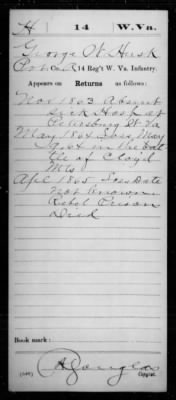 H 14 W.Va.
George W Husk
Co. , 14 Reg't W. Va. Infantry.
Appears on Returns as follows:
Nov 1863 Absent
Sick Hosp at
Petersburg W Va
May 1864 Loss, May
9, 64 in the Bat
tle of Cloyd
Mts
Apl 1865 Loss Date
Not Known
Rebel Prison
Died
Book mark:
(546)
Copyist.